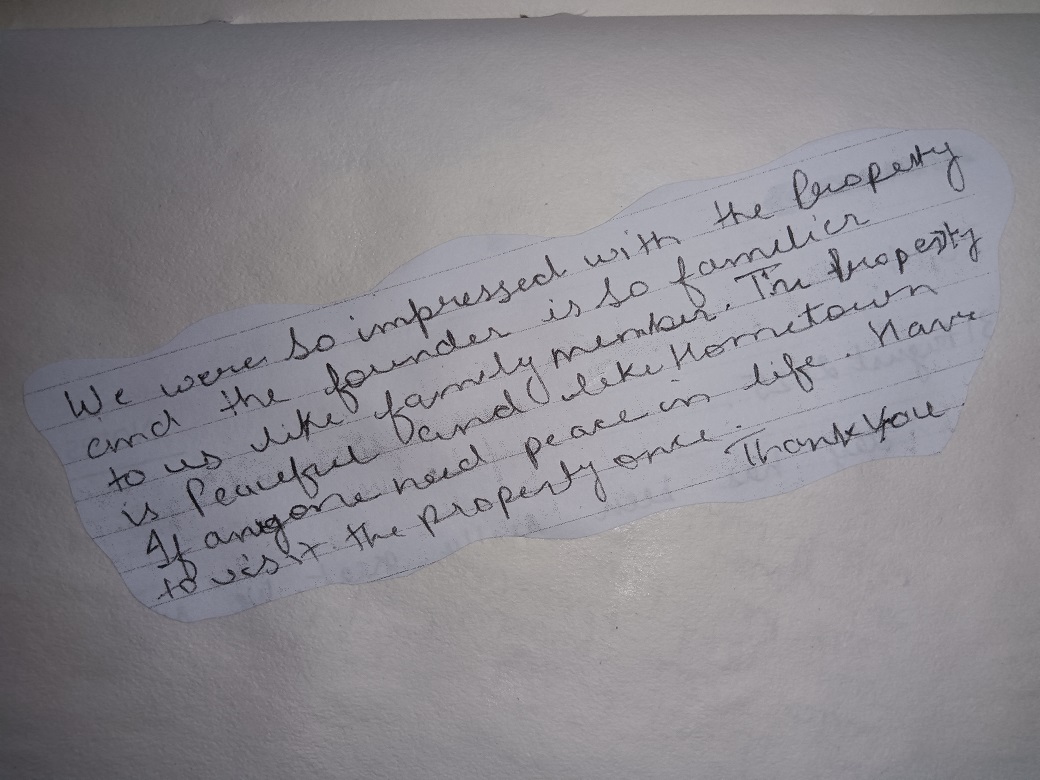 We were so impressed with the Property
and the founder is so familier
to us like family member. The Property
is Peaceful and like Hometown
If anyone need peace in life. Have
to visit the property once. Thank You